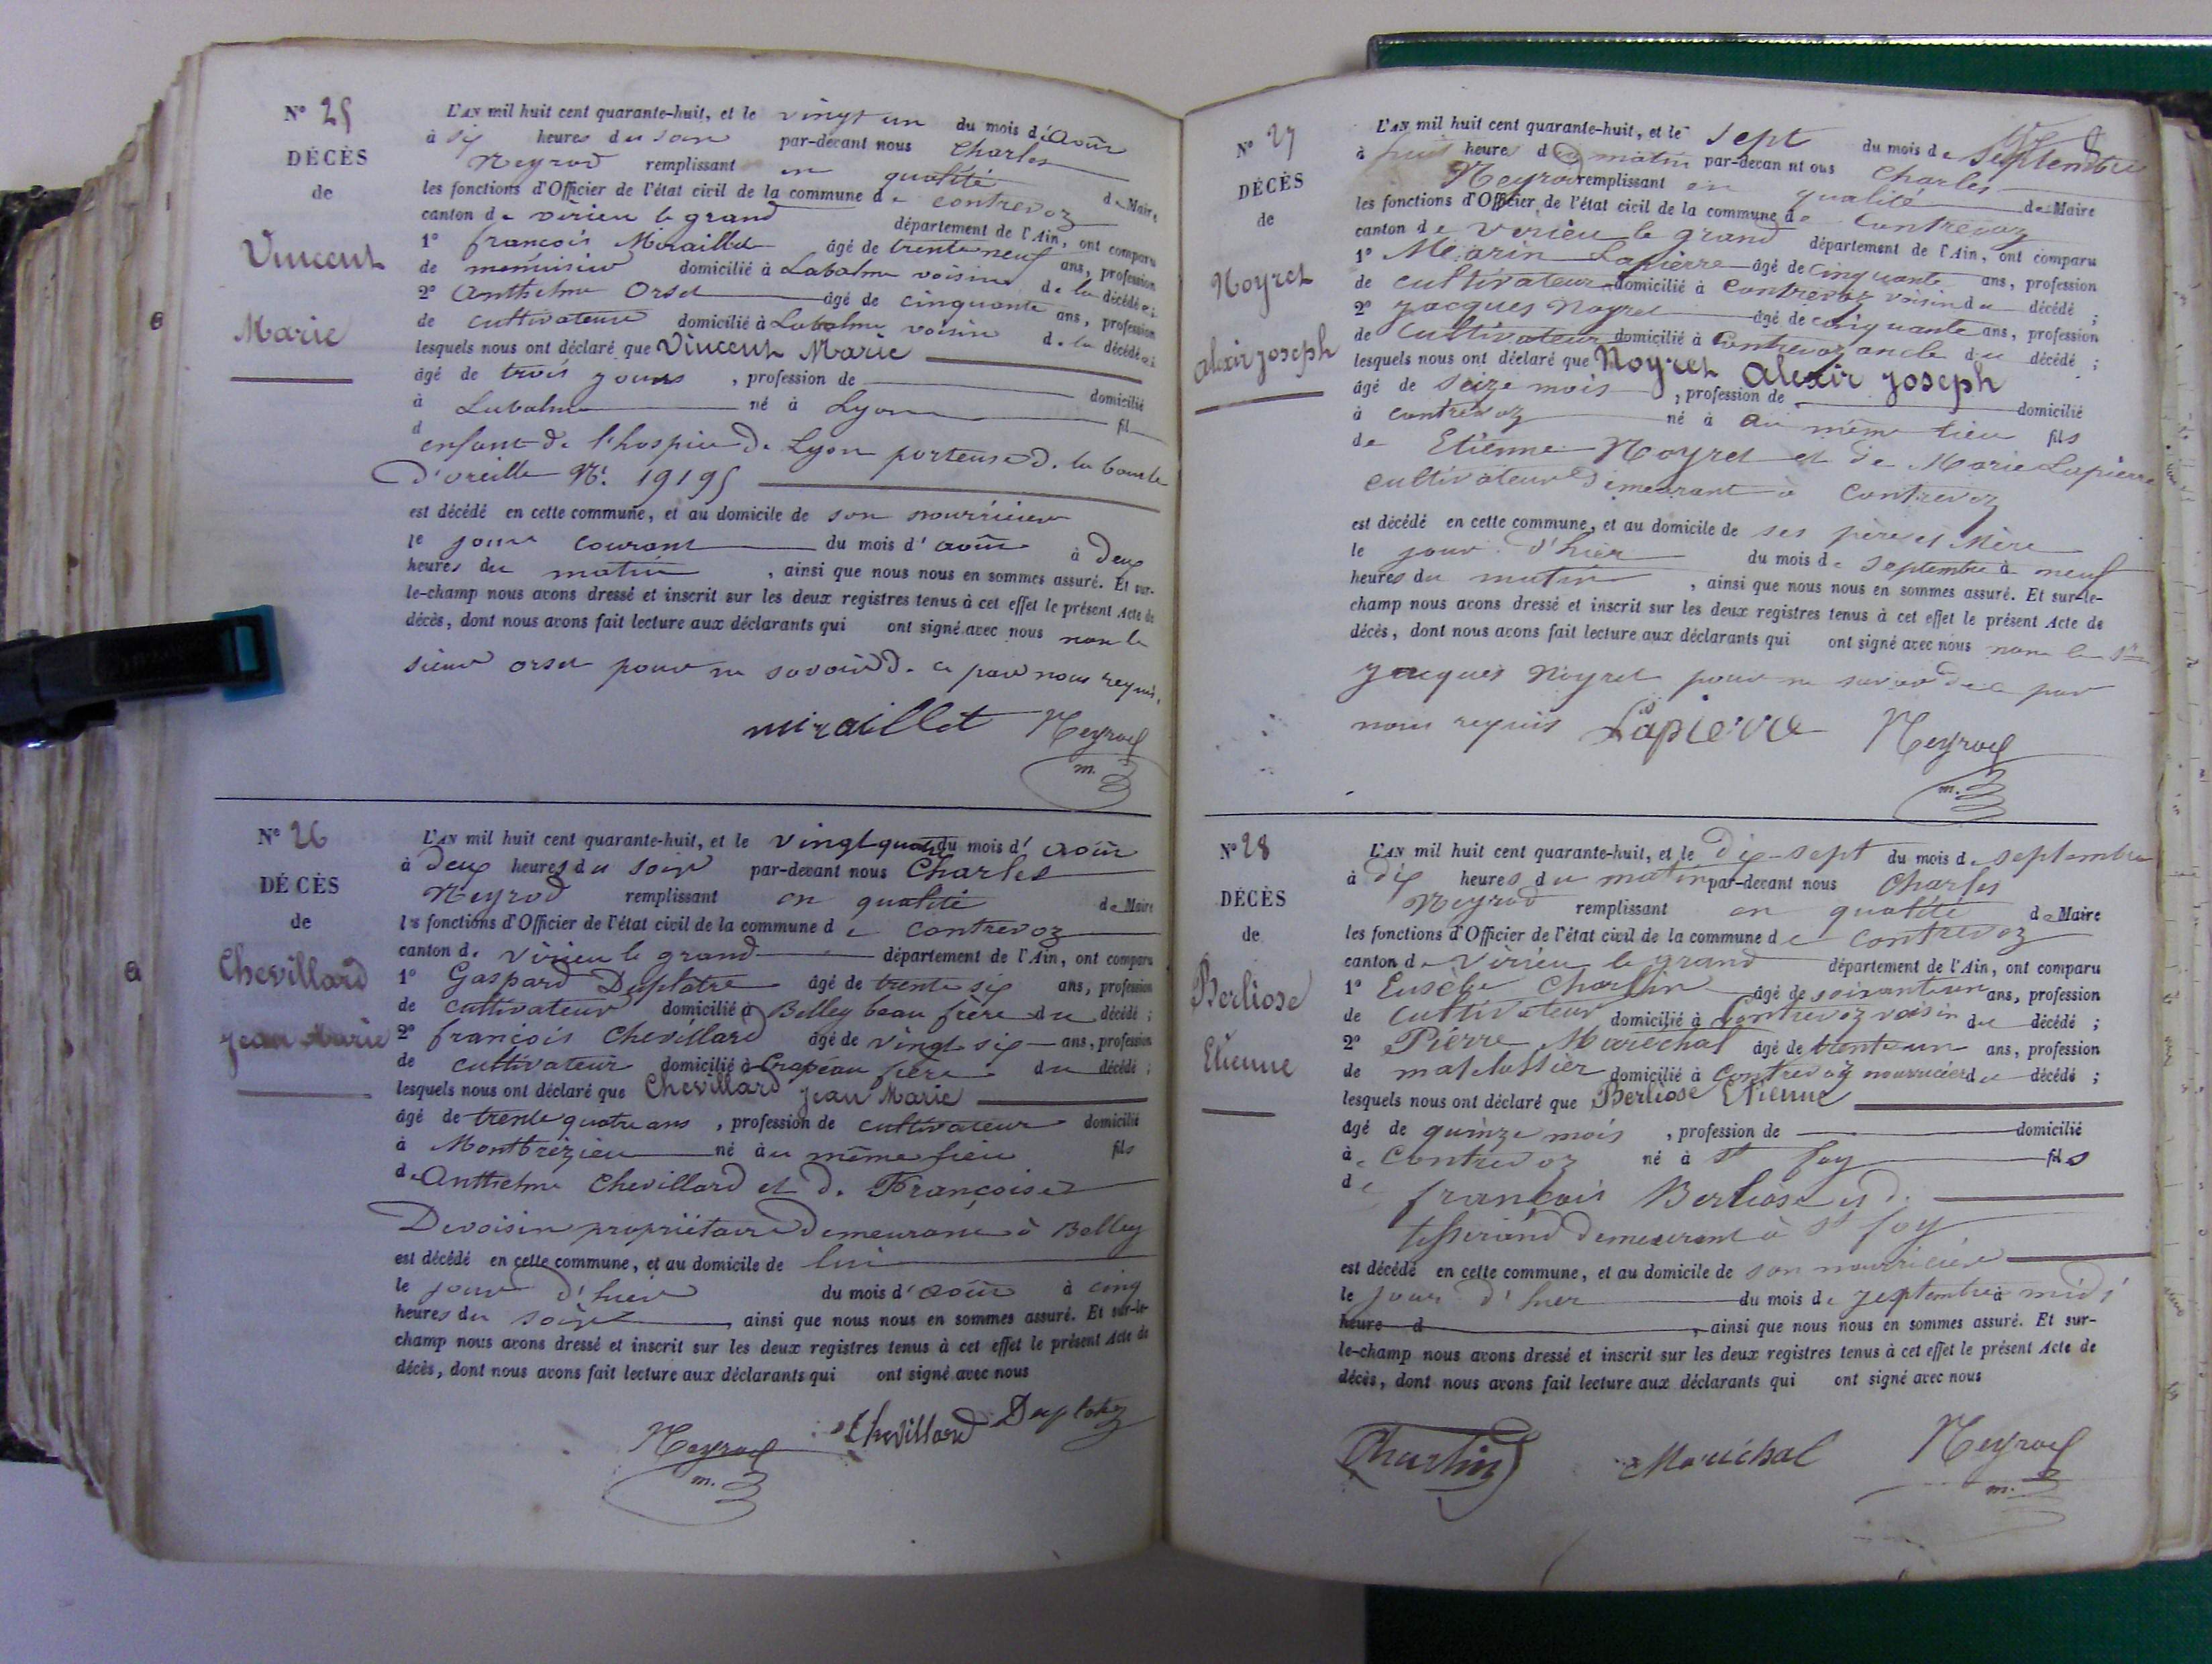 N° 25
DÉCÈS
de
Vincent
Marie
L'AN mil huit cent quarante-huit, et le vingt un du mois d'août
à six heures du soir par-devant nous Charles
Neyrod remplissant en qualité de Maire
les fonctions d'Officier de l'état civil de la commune de contrevoz
canton de virieu le grand département de l'Ain, ont comparu
1° françois Miraillet âgé de trente neuf ans, profession
de menuisier domicilié à Labalme voisin de la décédée ;
2° Anthelme Orset âgé de cinquante ans, profession
de cultivateur domicilié à Labalme voisin de la décédée ;
lesquels nous ont déclaré que Vincent Marie
âgé de trois jours , profession de domicilié
à Labalme né à Lyon fil
d enfant de l'hospice de Lyon porteuse de la boucle
d'oreille N°. 19195
est décédé en cette commune, et au domicile de son nourricier
le jour courant du mois d'août à deux
heures du matin , ainsi que nous nous en sommes assuré. Et sur-
le-champ nous avons dressé et inscrit sur les deux registres tenus à cet effet le présent Acte de
décès, dont nous avons fait lecture aux déclarants qui ont signé avec nous non le
sieur orset pour ne savoir de ce par nous requis.
miraillet Neyrod
m.
N° 26
DÉCÈS
de
Chevillard
Jean Marie
L'AN mil huit cent quarante-huit, et le vingt quatre du mois d'août
à deux heures du soir par-devant nous Charles
Neyrod remplissant en qualité de Maire
les fonctions d'Officier de l'état civil de la commune de contrevoz
canton de virieu le grand département de l'Ain, ont comparu
1° Gaspard Duplatre âgé de trente six ans, profession
de cultivateur domicilié à Belley beau frère du décédé ;
2° françois Chevillard âgé de vingt six ans, profession
de cultivateur domicilié à Crapéau frère du décédé ;
lesquels nous ont déclaré que Chevillard Jean Marie
âgé de trente quatre ans , profession de cultivateur domicilié
à Montbrézieu né au même lieu fils
de Anthelme Chevillard et de Françoise
Devoisin propriétaire demeurant à Belley
est décédé en cette commune, et au domicile de lui
le jour d'hier du mois d'août à cinq
heures du soir , ainsi que nous nous en sommes assuré. Et sur-le-
champ nous avons dressé et inscrit sur les deux registres tenus à cet effet le présent Acte de
décès, dont nous avons fait lecture aux déclarants qui ont signé avec nous
Neyrod Chevillard Duplatre
m.
N° 27
DÉCÈS
de
Noyret
Alexir Joseph
L'AN mil huit cent quarante-huit, et le sept du mois de septembre
à huit heures du matin par-devan nt ous Charles
Neyrod remplissant en qualité de Maire
les fonctions d'Officier de l'état civil de la commune de Contrevoz
canton de virieu le grand département de l'Ain, ont comparu
1° Marin Lapierre âgé de cinquante ans, profession
de cultivateur domicilié à Contrevoz voisin du décédé ;
2° Jacques Noyret âgé de cinquante ans, profession
de cultivateur domicilié à Contrevoz oncle du décédé ;
lesquels nous ont déclaré que Noyret Alexir Joseph
âgé de seize mois , profession de domicilié
à contrevoz né à au même lieu fils
de Etienne Noyret et de Marie Lapierre
cultivateur demeurant à Contrevoz
est décédé en cette commune, et au domicile de ses père et Mère
le jour d'hier du mois de septembre à neuf
heures du matin , ainsi que nous nous en sommes assuré. Et sur-le-
champ nous avons dressé et inscrit sur les deux registres tenus à cet effet le présent Acte de
décès, dont nous avons fait lecture aux déclarants qui ont signé avec nous non le Sr
Jacques Noyret pour ne savoir de ce par
nous requis Lapierre Neyrod
m.
N° 28
DÉCÈS
de
Berliose
Etienne
L'AN mil huit cent quarante-huit, et le dix-sept du mois de septembre
à dix heures du matin par-devant nous Charles
Neyrod remplissant en qualité de Maire
les fonctions d'Officier de l'état civil de la commune de contrevoz
canton de virieu le grand département de l'Ain, ont comparu
1° Eusèbe Charlin âgé de soixante un ans, profession
de cultivateur domicilié à Contrevoz voisin du décédé ;
2° Pierre Maréchal âgé de trente un ans, profession
de matelassier domicilié à Contrevoz nourricier du décédé ;
lesquels nous ont déclaré que Berliose Etienne
âgé de quinze mois , profession de domicilié
à Contrevoz né à St foy fils
de françois Berliose et de
tisserand demeurant à St foy
est décédé en cette commune, et au domicile de son nourricier
le jour d'hier du mois de septembre à midi
heure d , ainsi que nous nous en sommes assuré. Et sur-
le-champ nous avons dressé et inscrit sur les deux registres tenus à cet effet le présent Acte de
décès, dont nous avons fait lecture aux déclarants qui ont signé avec nous
Charlin Maréchal Neyrod
m.